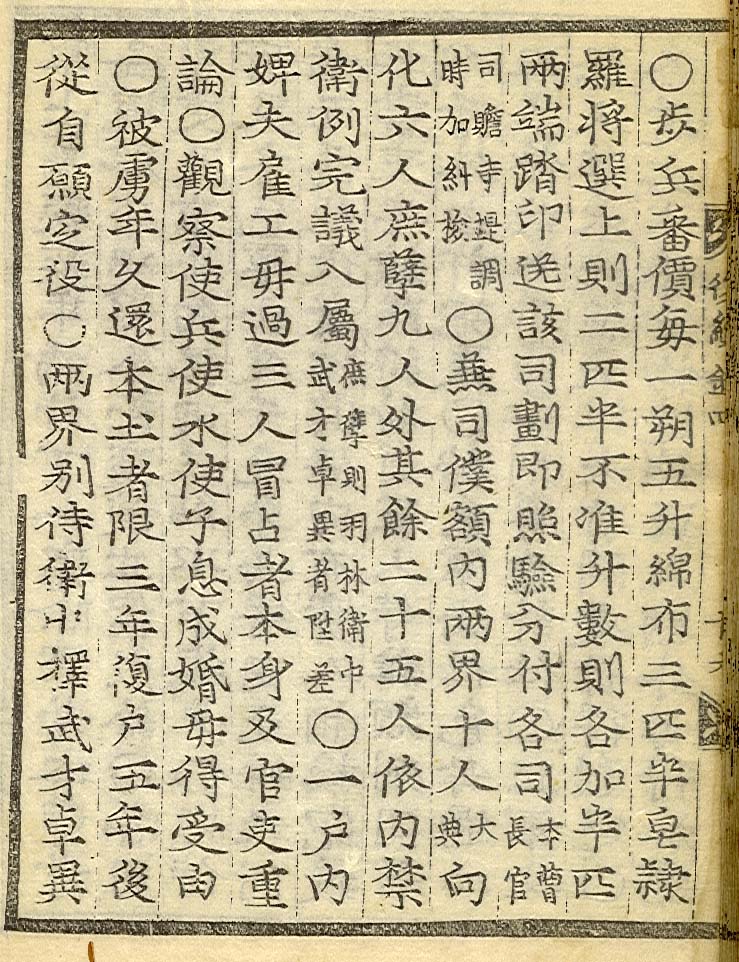 ○步兵番價每一朔五升綿布三匹半皂隷
羅將選上則二匹半不准升數則各加半匹
兩端踏印送該司劃即照驗分付各司本曹長官
司贍寺提調時加糾撿○兼司僕額內兩界十人大典向
化六人庶孽九人外其餘二十五人依內禁
衛例完議入屬庶孽則羽林衛中武才卓異者陞差○一戶內
婢夫雇工毋過三人冒占者本身及官吏重
論○觀察使兵使水使子息成婚毋得受由
○被虜年久還本土者限三年復戶五年後
從自願定役○兩界別侍衛中擇武才卓異